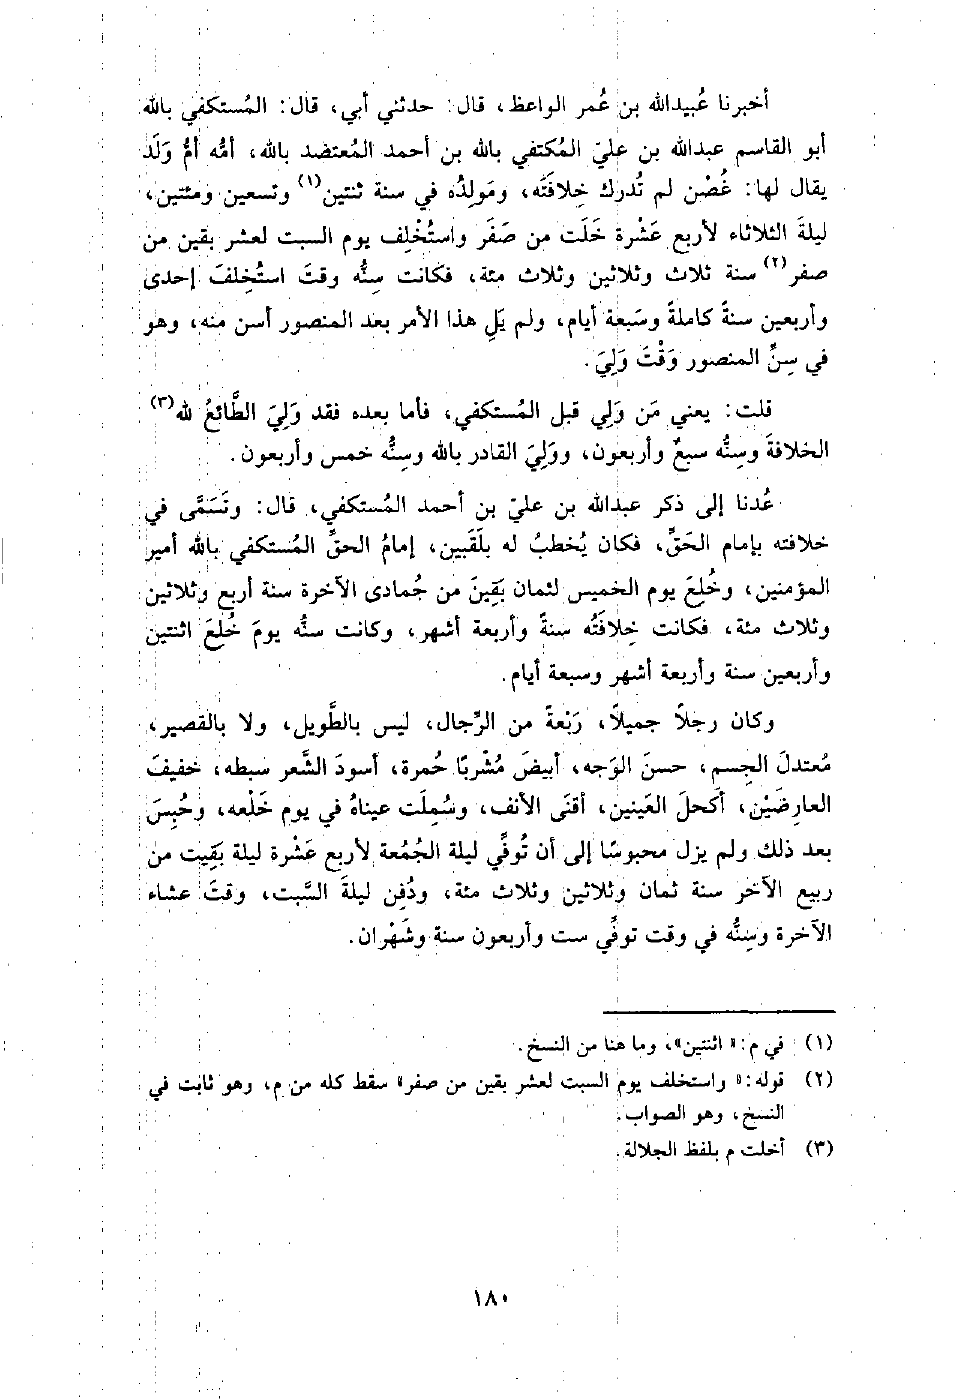 أخبرنا عُبيدالله بن عُمر الواعظ، قال: حدثني أبي، قال: المُستكفي بالله
أبو القاسم عبدالله بن عليّ المُكتفي بالله بن أحمد المُعتضد بالله، أمُّه أمُّ وَلَد
يقال لها: غُصْن لم تُدرك خِلافَتَه، ومَولِدُه في سنة ثنتين(١) وتسعين ومئتين،
ليلةَ الثلاثاء لأربع عَشْرة خَلَت من صَفَر واستُخلِف يوم السبت لعشر بقين من
صفر(٢) سنة ثلاث وثلاثين وثلاث مئة، فكانت سِنُّه وقتَ استُخلِفَ إحدى
وأربعين سنةً كاملةً وسَبعة أيام، ولم يَلِ هذا الأمر بعد المنصور أسن منه، وهو
في سِنِّ المنصور وَقْتَ وَلِيَ.
قلت: يعني مَن وَلِي قبل المُستكفي، فأما بعده فقد وَلِيَ الطَّائعُ لله(٣)
الخلافةَ وسِنُّه سبعٌ وأربعون، ووَلِيَ القادر بالله وسِنُّه خمس وأربعون.
عُدنا إلى ذكر عبدالله بن عليّ بن أحمد المُستكفي، قال: وتَسَمَّى في
خلافته بإمام الحَقِّ، فكان يُخطبُ له بلَقَبين، إمامُ الحقِّ المُستكفي بالله أمير
المؤمنين، وخُلِعَ يوم الخميس لثمان بَقِينَ من جُمادى الآخرة سنة أربع وثلاثين
وثلاث مئة، فكانت خِلافَتُه سنةً وأربعة أشهر، وكانت سنُّه يومَ خُلِعَ اثنتين
وأربعين سنة وأربعة أشهر وسبعة أيام.
وكان رجلاً جميلاً، رَبْعةً من الرِّجال، ليس بالطَّويل، ولا بالقصير،
مُعتدلَ الجِسم، حسنَ الوَجه، أبيضَ مُشْربًا حُمرة، أسودَ الشَّعر سبطه، خفيفَ
العارِضَيْن، أكحلَ العَينين، أقنَى الأنف، وسُمِلَت عيناهُ في يوم خَلْعه، وحُبِسَ
بعد ذلك ولم يزل محبوسًا إلى أن تُوفِّي ليلة الجُمُعة لأربع عَشْرة ليلة بَقِيت من
ربيع الآخر سنة ثمان وثلاثين وثلاث مئة، ودُفِن ليلةَ السَّبت، وقتَ عشاء
الآخرة وسِنُّه في وقت توفِّي ست وأربعون سنة وشَهْران.
(١) في م: «اثنتين»، وما هنا من النسخ.
(٢) قوله: «واستخلف يوم السبت لعشر بقين من صفر» سقط كله من م، وهو ثابت في
النسخ، وهو الصواب.
(٣) أخلت م بلفظ الجلالة.
١٨٠